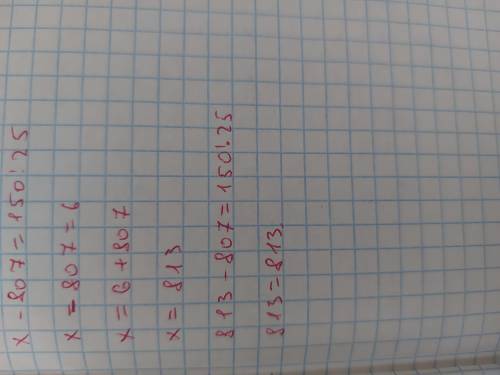 x - 807 = 150:25
x - 807 = 6
x = 6 + 807
x = 813
813 - 807 = 150:25
813 = 813.